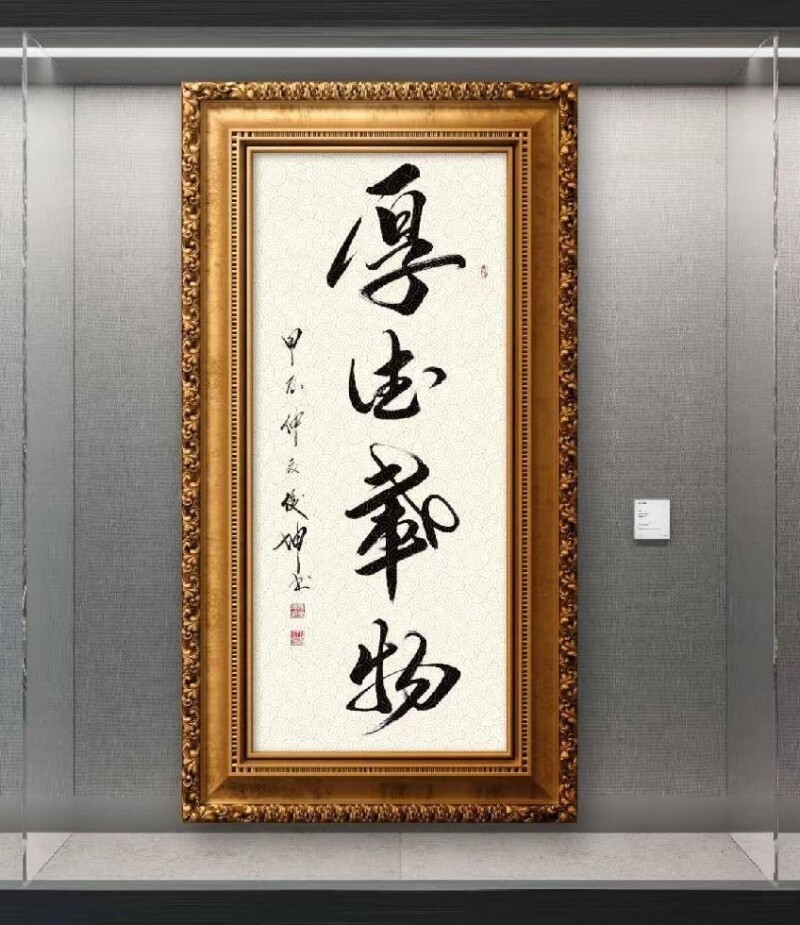 厚德載物
甲辰仲夏俊坤书